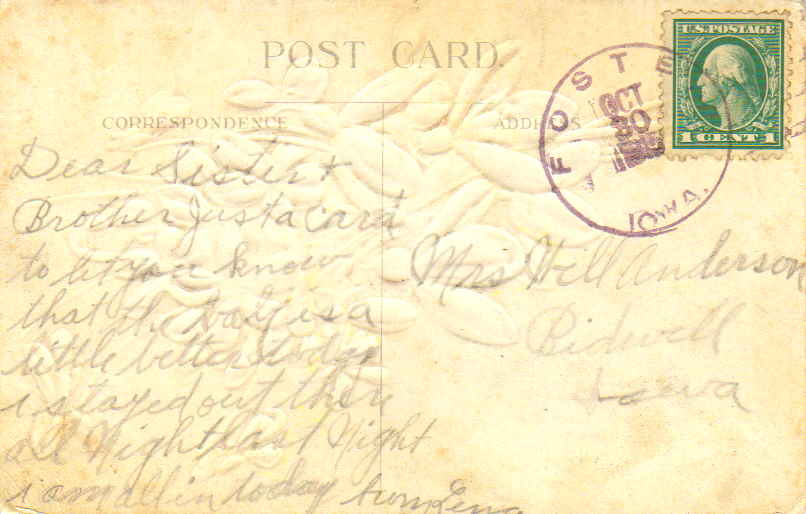 POST CARD.
CORRESPONDENCE
ADDRESS
FOSTE
OCT
30
IOWA.
U.S. POSTAGE
1 CENT 1
Dear Sister +
Brother Just a card
to let you know
that the baby is a
little better today
i stayed out there
all Night last Night
i am all in today
Mrs Will Anderson
Bidwell
Iowa